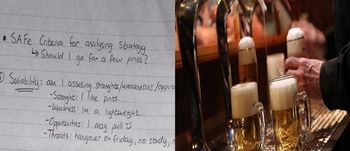 • SAFe Criteria for analysing Strategy
↳ Should I go for a few pints?
Suitability: am I assesing strenghts/weaknesses/
- Strenght: I like pints.
- Weakness: im a lightweight.
- Opportunities: I may pull
- Threats: hangover on Friday, no study,